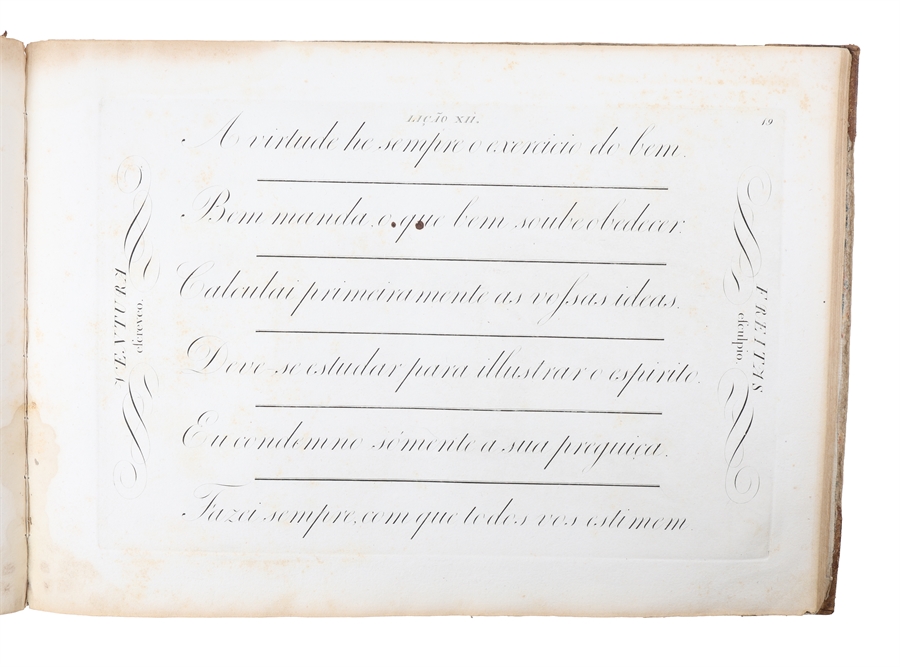 LIÇÃO XII.
19
A virtude he sempre o exercicio do bem.
Bem manda, o que bem soube obedecer.
Calculai primeiramente as voſsas ideas.
Deve-se estudar para illustrar o espirito.
Eu condemno sómente a sua preguiça.
Fazei sempre, com que todos vos estimem.
VENTURA
escreveo.
FREITAS
esculpio.